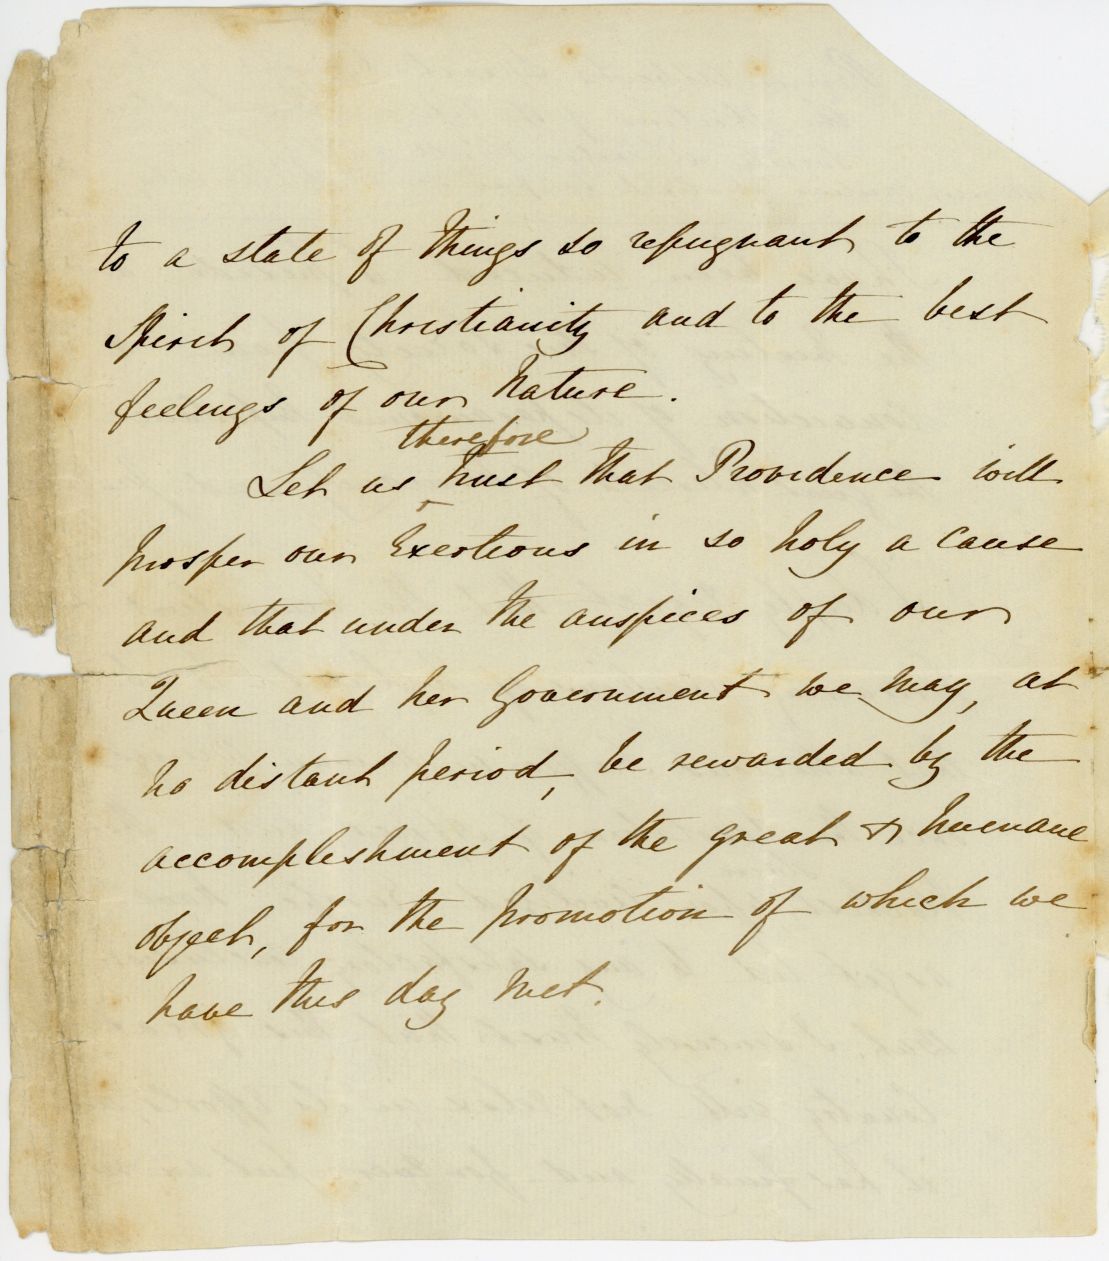 to a state of things so repugnant to the
Spirit of Christianity and to the best
feelings of our Nature.
therefore
Let us ^ trust that Providence will
prosper our Exertions in so holy a cause
and that under the auspices of our
Queen and her Government we may, at
no distant period, be rewarded by the
accomplishment of the great & humane
object, for the promotion of which we
have this day met.